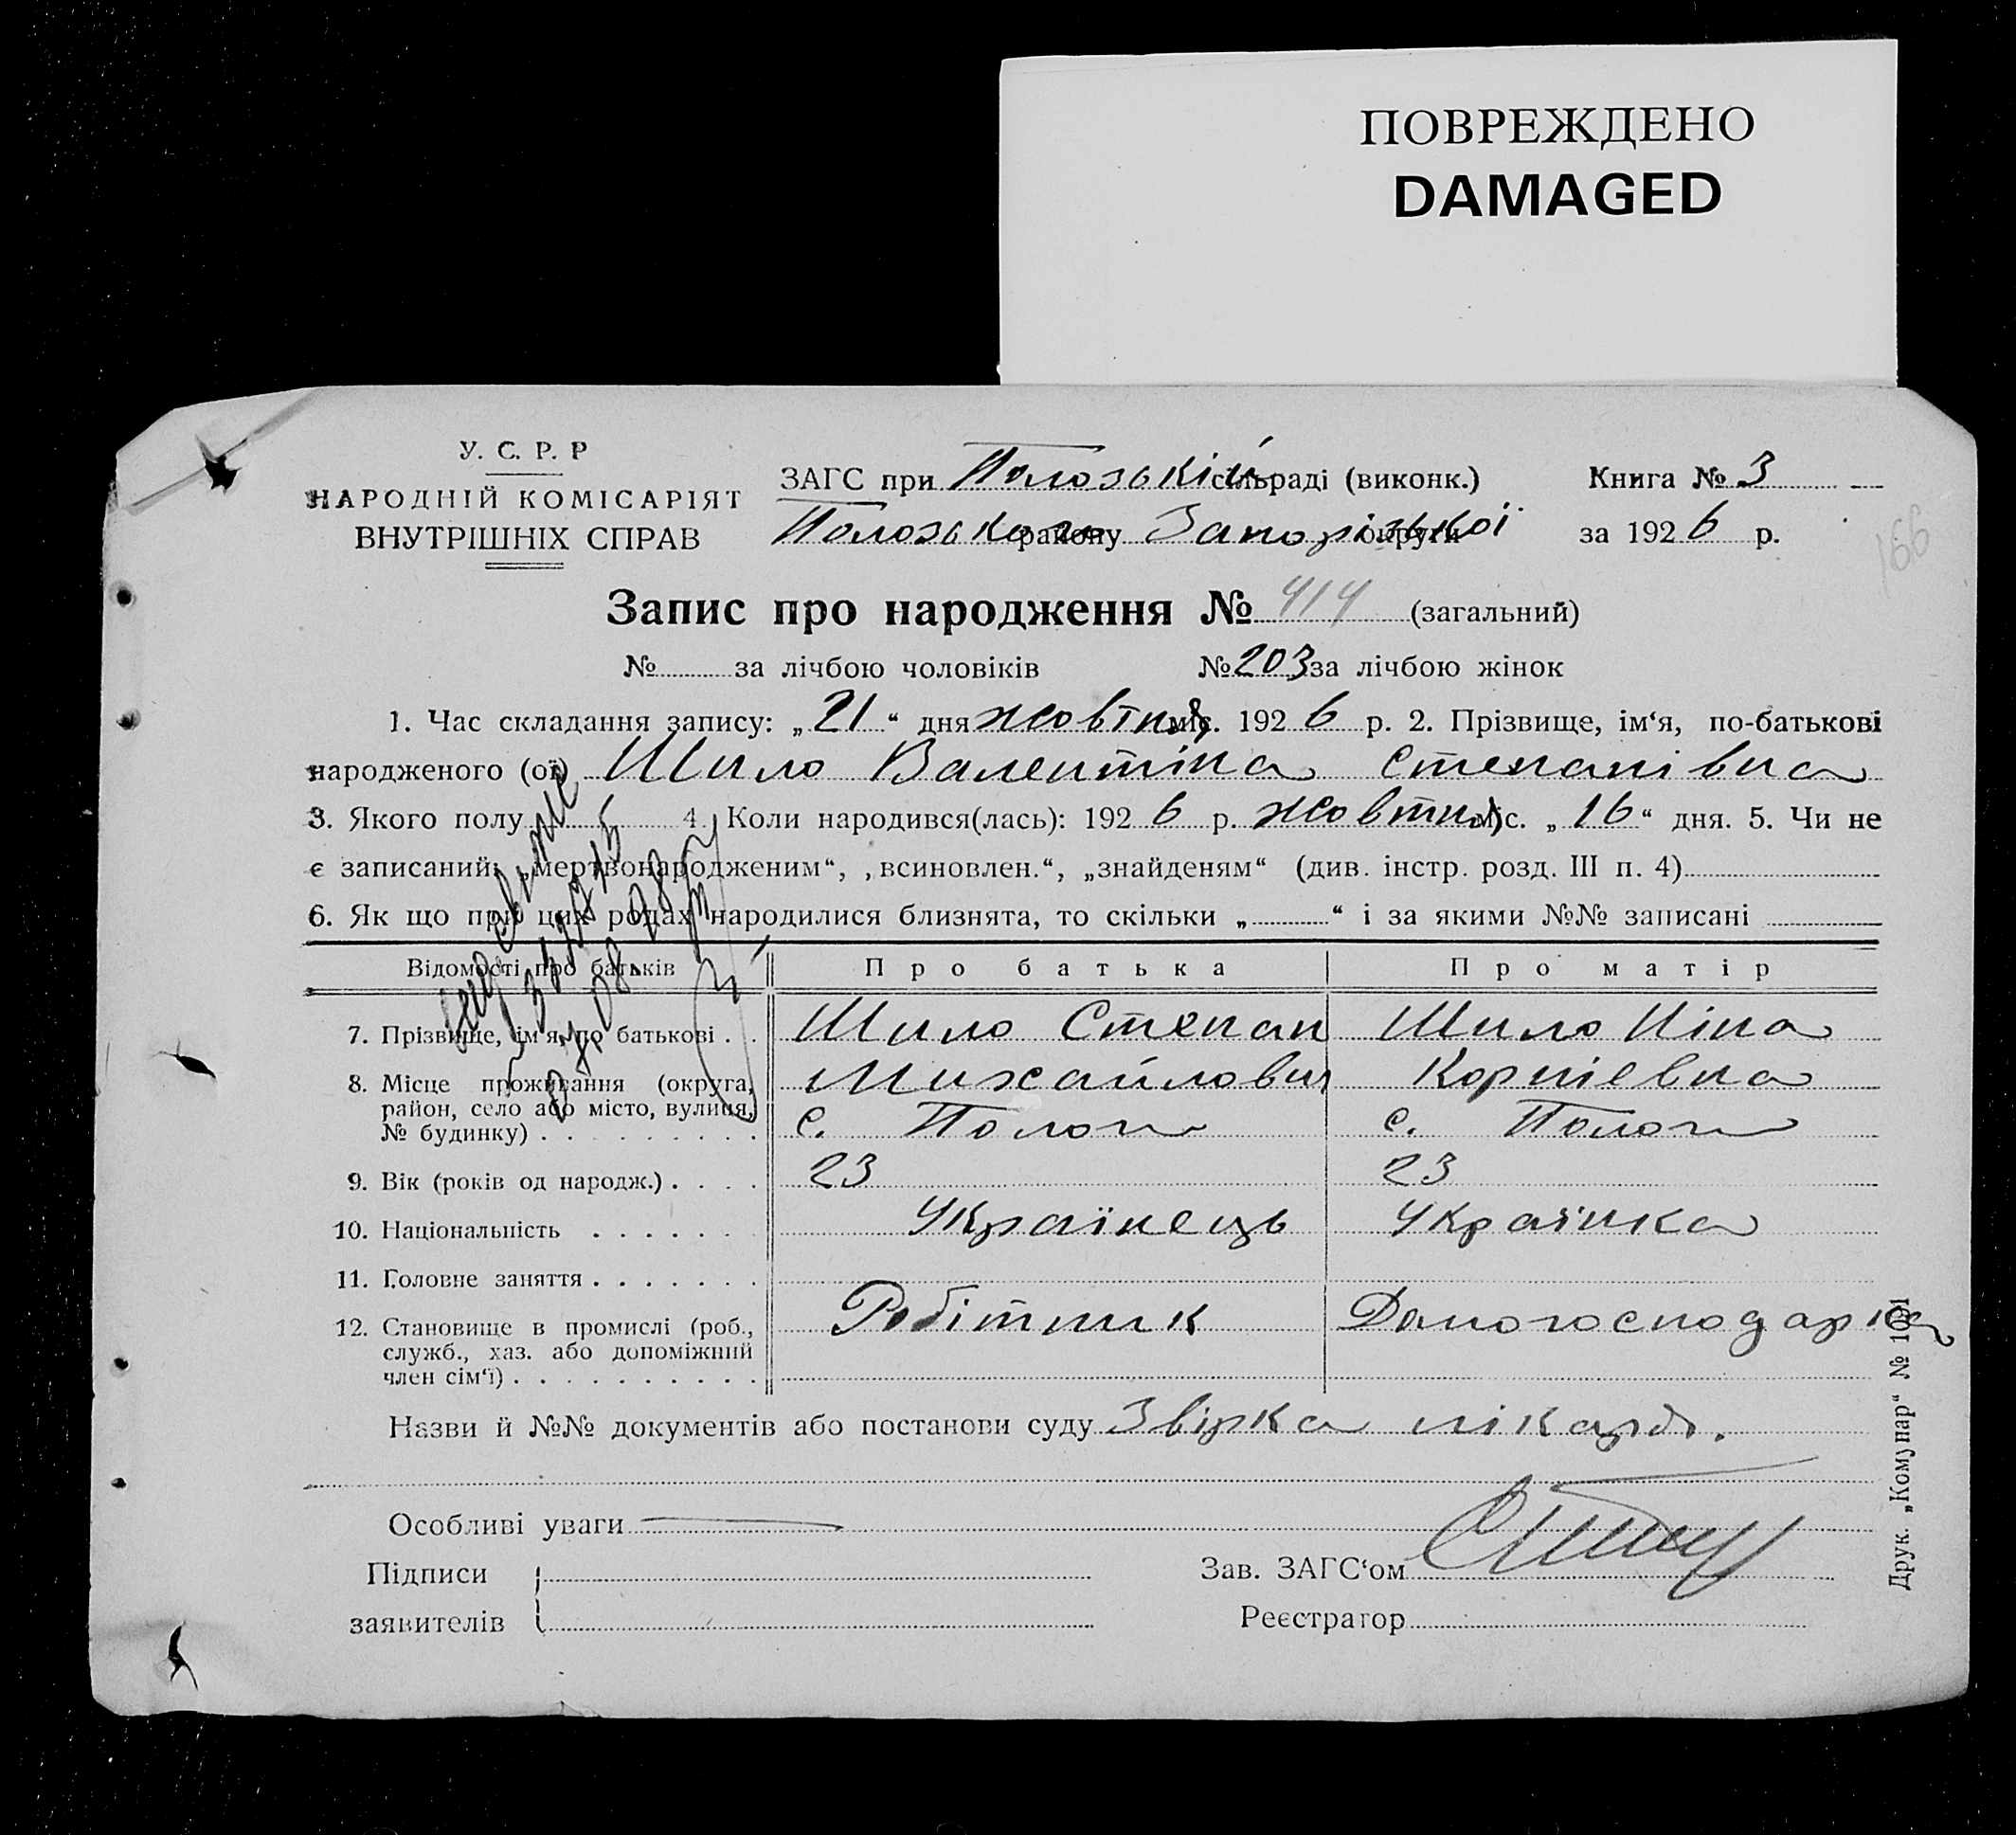 ПОВРЕЖДЕНО
DAMAGED
У. С. Р. Р
НАРОДНІЙ КОМІСАРІЯТ
ВНУТРІШНІХ СПРАВ
ЗАГС при Полозькій сільраді (виконк.)
Полозького району Запорізької округи
Книга № 3
за 1926 р.
166
Запис про народження № 414 (загальний)
№ за лічбою чоловіків № 203 за лічбою жінок
1. Час складання запису: „21“ дня жовтня міс. 1926 р. 2. Прізвище, ім‘я, по-батькові
народженого (ої) Шило Валентіна Степанівна
3. Якого полу 4. Коли народився(лась): 1926 р. жовтня міс. „16“ дня. 5. Чи не
є записаний: „мертвонародженим“, „всиновлен.“, „знайденям“ (див. інстр. розд. III п. 4)
6. Як що при цих родах народилися близнята, то скільки „ “ і за якими №№ записані
Відомості про батьків Про батька Про матір
7. Прізвище, ім‘я, по батькові . . Шило Степан Шило Ніна
Михайлович Корніевна
8. Місце проживання (округа,
район, село або місто, вулиця,
№ будинку) . . . . . . . . . с. Пологи с. Пологи
9. Вік (років од народж.) . . . . 23 23
10. Національність . . . . . . Українець Українка
11. Головне заняття . . . . . . .
12. Становище в промислі (роб.,
служб., хаз. або допоміжний
член сім‘ї) . . . . . . . . . . Робітник Домогосподарка
Назви й №№ документів або постанови суду Звірка лікаря.
Особливі уваги
Підписи
заявителів
Зав. ЗАГС‘ом
Реєстратор
Друк. „Комунар“ № 1091